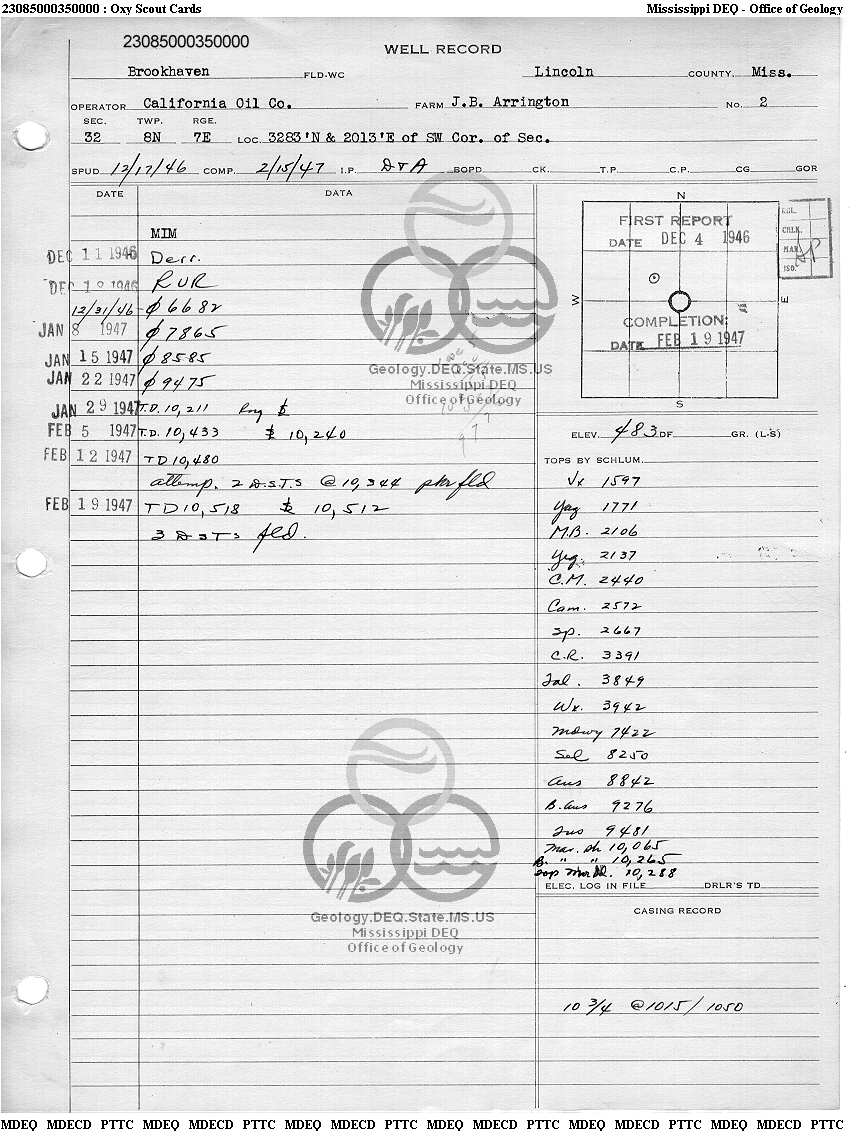 23085000350000 : Oxy Scout Cards Mississippi DEQ - Office of Geology
23085000350000
WELL RECORD
Brookhaven FLD-WC Lincoln COUNTY, Miss.
OPERATOR California Oil Co. FARM J.B. Arrington No. 2
SEC. TWP. RGE.
32 8N 7E LOC. 3283'N & 2013'E of SW Cor. of Sec.
SPUD 12/17/46 COMP. 2/15/47 I.P. D & A BOPD CK. T.P. C.P. CG GOR
DATE DATA
MIM
DEC 11 1946 Derr.
DEC 18 1946 RUR
12/31/46 ϕ 6682
JAN 8 1947 ϕ 7865
JAN 15 1947 ϕ 8585
JAN 22 1947 ϕ 9475
JAN 29 1947 T.D. 10,211
FEB 5 1947 T.D. 10,433 10,240
FEB 12 1947 TD 10,480
attemp. 2 D.S.T.S @ 10,344 pkr fld
FEB 19 1947 TD 10,518 10,512
3 DSTs fld.
N
FIRST REPORT
DATE DEC 4 1946
W E
COMPLETION:
DATE FEB 19 1947
S
CHLK.
MAR.
ISO.
ELEV. 483 DF GR. (L-S)
TOPS BY SCHLUM.
Vx 1597
Yaz 1771
M.B. 2106
Yeg. 2137
C.M. 2440
Cam. 2572
Sp. 2667
C.R. 3391
Tal. 3849
Wx. 3942
Mdwy 7422
Sel 8250
Aus 8842
B. Aus 9276
Tus 9481
Mar. sh 10,065
B. " " 10,265
10,288
ELEC. LOG IN FILE DRLR'S TD
CASING RECORD
10 3/4 @ 1015/1050
Geology.DEQ.State.MS.US
Mississippi DEQ
Office of Geology
Geology.DEQ.State.MS.US
Mississippi DEQ
Office of Geology
MDEQ MDECD PTTC MDEQ MDECD PTTC MDEQ MDECD PTTC MDEQ MDECD PTTC MDEQ MDECD PTTC MDEQ MDECD PTTC